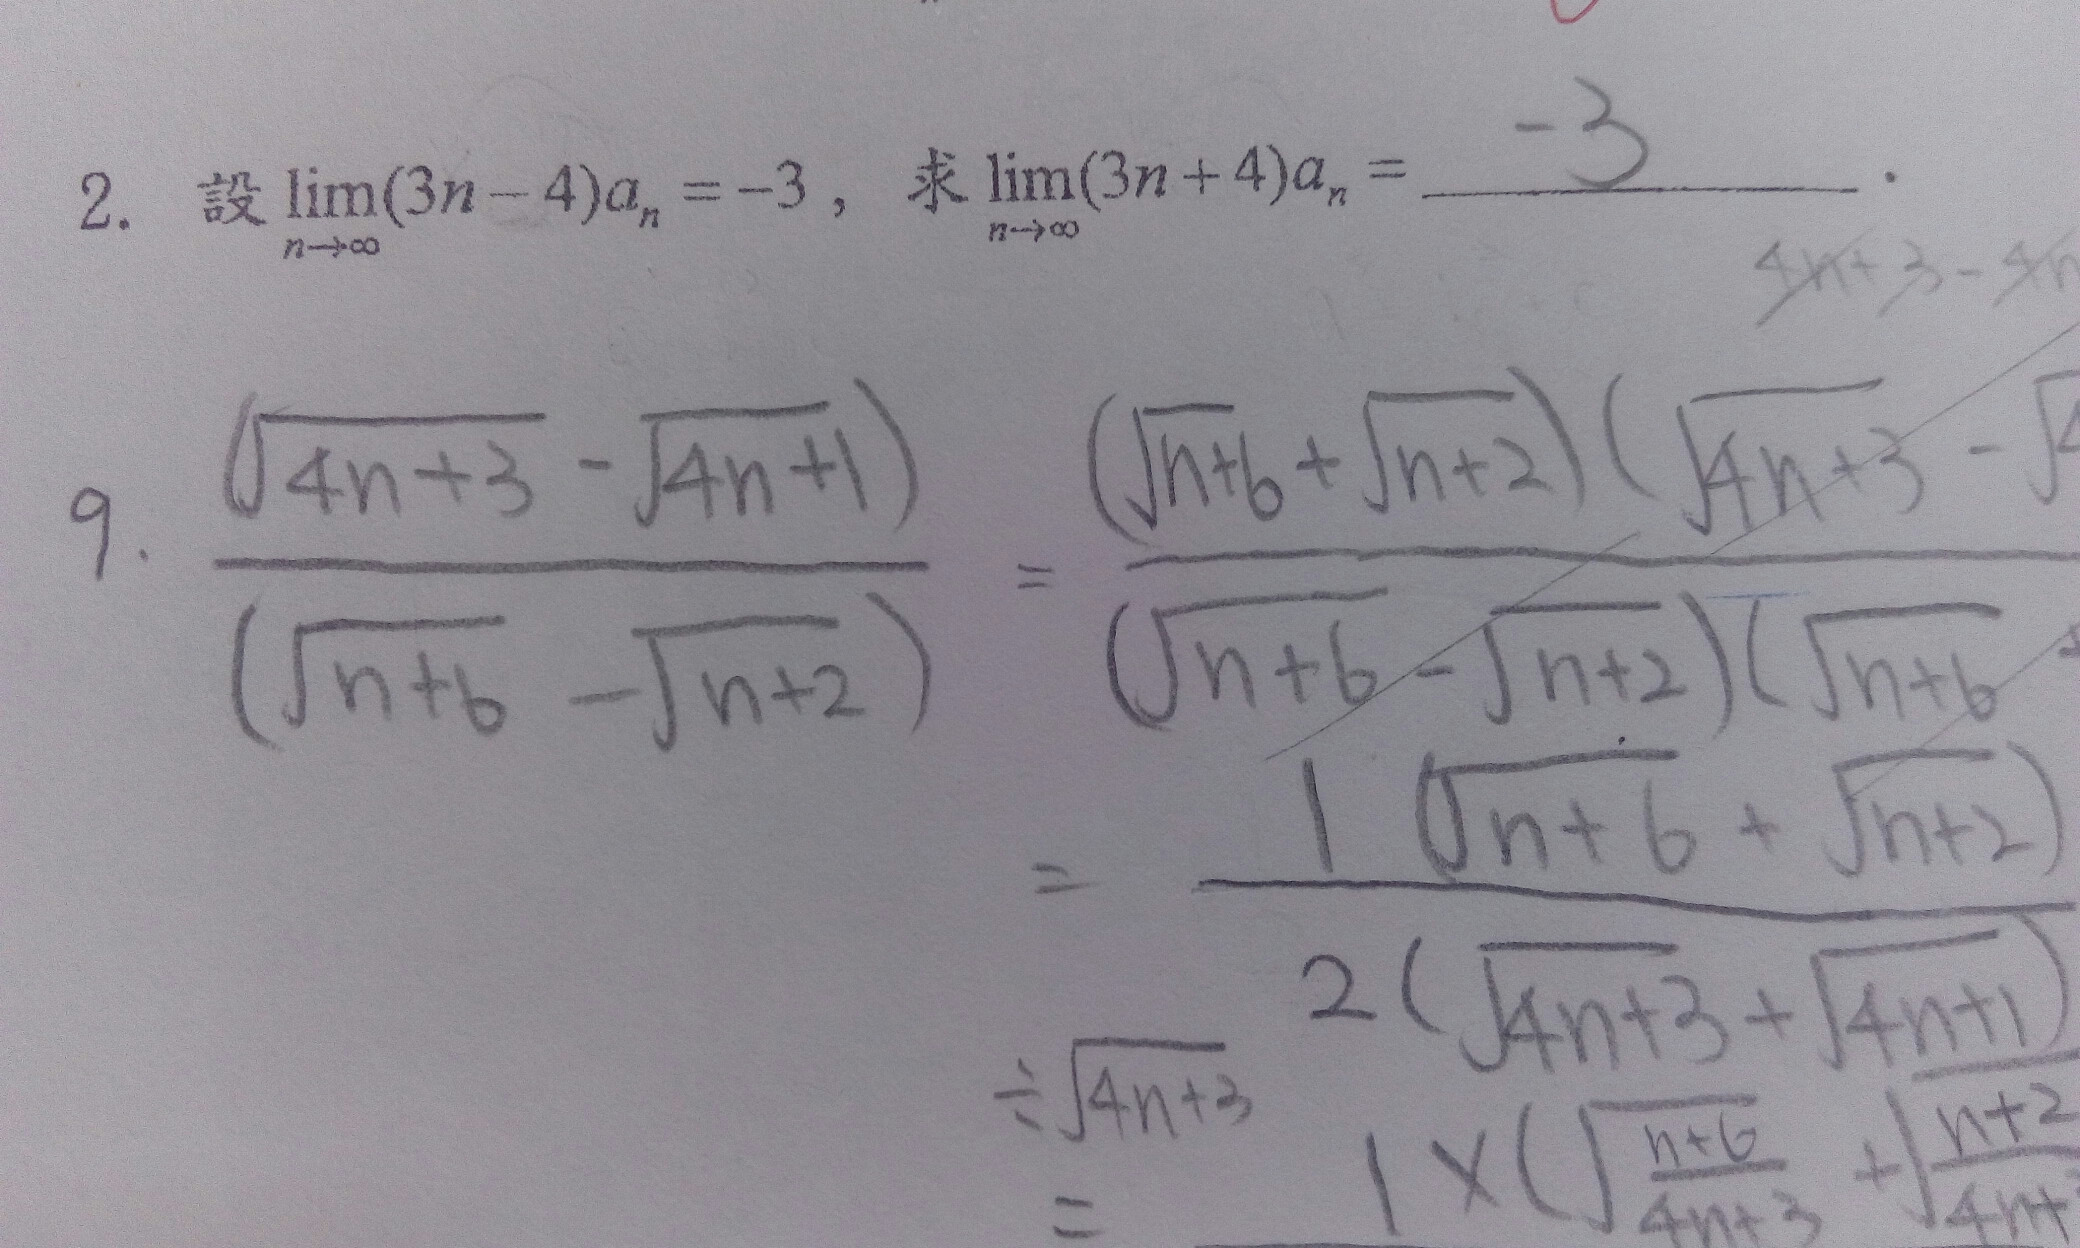 2. 設 lim(3n－4)aₙ = －3，求 lim(3n＋4)aₙ = -3 .
n→∞ n→∞
4n+3-4n
9. (√4n+3 - √4n+1) / (√n+6 - √n+2) = (√n+6 + √n+2)(√4n+3 - √4 / (√n+6 - √n+2)(√n+6 +
= 1 (√n+6 + √n+2) / 2(√4n+3 + √4n+1)
÷√4n+3
= 1×(√n+6/4n+3 + √n+2/4n+